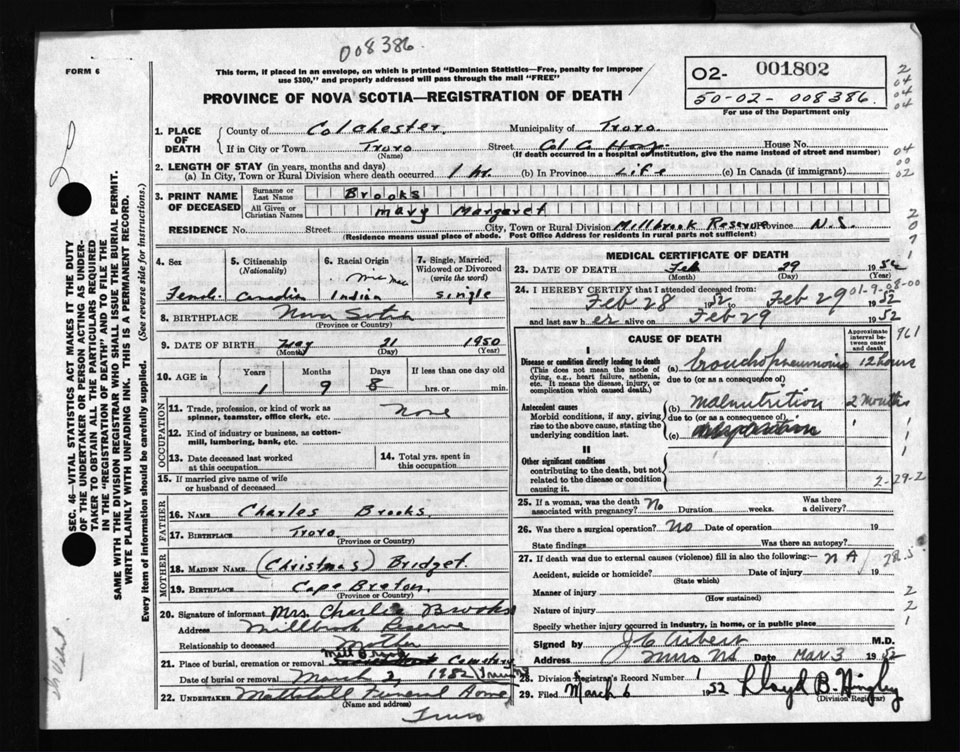 008386
FORM 6
This form, if placed in an envelope, on which is printed "Dominion Statistics—Free, penalty for improper
use $300," and properly addressed will pass through the mail "FREE"
PROVINCE OF NOVA SCOTIA—REGISTRATION OF DEATH
02- 001802
50-02-008386.
For use of the Department only
2
04
04
04
04
00
02
2
0
7
1
1. PLACE OF DEATH County of Colchester. Municipality of Truro.
If in City or Town Truro Street Col Co Hosp. House No.
(Name) (If death occurred in a hospital or institution, give the name instead of street and number)
2. LENGTH OF STAY (in years, months and days)
(a) In City, Town or Rural Division where death occurred 1 hr. (b) In Province Life (c) In Canada (if immigrant)
3. PRINT NAME OF DECEASED Surname or Last Name Brooks
All Given or Christian Names Mary Margaret
RESIDENCE No. Street City, Town or Rural Division Millbrook Reserve Province N.S.
(Residence means usual place of abode. Post Office Address for residents in rural parts not sufficient)
SEC. 46—VITAL STATISTICS ACT MAKES IT THE DUTY
OF THE UNDERTAKER OR PERSON ACTING AS UNDER-
TAKER TO OBTAIN ALL THE PARTICULARS REQUIRED
IN THE "REGISTRATION OF DEATH" AND TO FILE THE
SAME WITH THE DIVISION REGISTRAR WHO SHALL ISSUE THE BURIAL PERMIT.
WRITE PLAINLY WITH UNFADING INK. THIS IS A PERMANENT RECORD.
Every item of information should be carefully supplied. (See reverse side for instructions.)
4. Sex 5. Citizenship (Nationality) 6. Racial Origin 7. Single, Married, Widowed or Divorced (write the word)
Female Canadian Mic Mac Indian Single
8. BIRTHPLACE Nova Scotia
(Province or Country)
9. DATE OF BIRTH May 21 1950
(Month) (Day) (Year)
10. AGE in Years Months Days If less than one day old
1 9 8 hrs. or min.
OCCUPATION
11. Trade, profession or kind of work as spinner, teamster, office clerk, etc. None
12. Kind of industry or business, as cotton-mill, lumbering, bank, etc.
13. Date deceased last worked at this occupation
14. Total yrs. spent in this occupation
15. If married give name of wife or husband of deceased
FATHER
16. NAME Charles Brooks.
17. BIRTHPLACE Truro
(Province or Country)
MOTHER
18. MAIDEN NAME (Christmas) Bridget.
19. BIRTHPLACE Cape Breton.
(Province or Country)
20. Signature of informant Mrs. Charlie Brooks
Address Millbrook Reserve
Relationship to deceased Mother
21. Place of burial, cremation or removal Millbrook Cemetery
Date of burial or removal March 2, 1952 (Truro)
22. UNDERTAKER Mattatall Funeral Home
(Name and address)
Truro
MEDICAL CERTIFICATE OF DEATH
23. DATE OF DEATH Feb 29 1952
(Month) (Day) (Year)
24. I HEREBY CERTIFY that I attended deceased from:
Feb 28 1952 to Feb 29 1952
01-9-08-00
and last saw her alive on Feb 29 1952
CAUSE OF DEATH
Approximate interval between onset and death
961
I
Disease or condition directly leading to death
(This does not mean the mode of dying, e.g., heart failure, asthenia, etc. It means the disease, injury, or complication which caused death.)
(a) bronchopneumonia 12 hours
due to (or as a consequence of)
Antecedent causes
Morbid conditions, if any, giving rise to the above cause, stating the underlying condition last.
(b) Malnutrition 2 months
due to (or as a consequence of)
(c)
II
Other significant conditions
contributing to the death, but not related to the disease or condition causing it.
2-29-2
25. If a woman, was the death associated with pregnancy? No Duration weeks. Was there a delivery?
26. Was there a surgical operation? No Date of operation 19
State findings Was there an autopsy?
27. If death was due to external causes (violence) fill in also the following:— NA
Accident, suicide or homicide? Date of injury 19
(State which)
Manner of injury 2
(How sustained)
Nature of injury 2
Specify whether injury occurred in industry, in home, or in public place 1
Signed by M.D.
Address Truro NS Date Mar 3 1952
28. Division Registrar's Record Number 1
29. Filed March 6 1952 Lloyd B.
(Division Registrar)